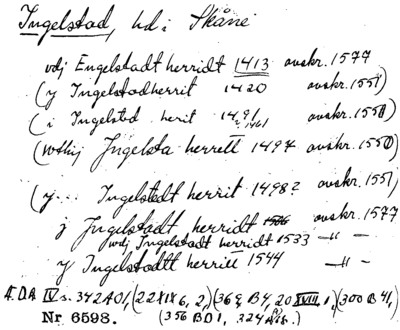 Ingelstad, hd i Skåne
vdj Engelstadt herridt 1413 avskr. 1577
(y Ingelstadherrit 1420 avskr. 1551)
(i Ingelstod herit 1491 avskr. 1550)
1461
(wthij Jngelsta herrett 1494 avskr. 1550)
(y... Ingelstedt herrit 1498? avskr. 1551
j Jngelstadt herridt 1536 avskr. 1577
wdj Ingelstadt herridt 1533 —"—
y Ingelstadtt herrett 1544 —"—
Æ.DA IV s. 342A01, (22XIX6, 2,) (36 B4, 20 XVIII, 1,) (300 B 41,)
Nr 6598. (356 BD1, 324